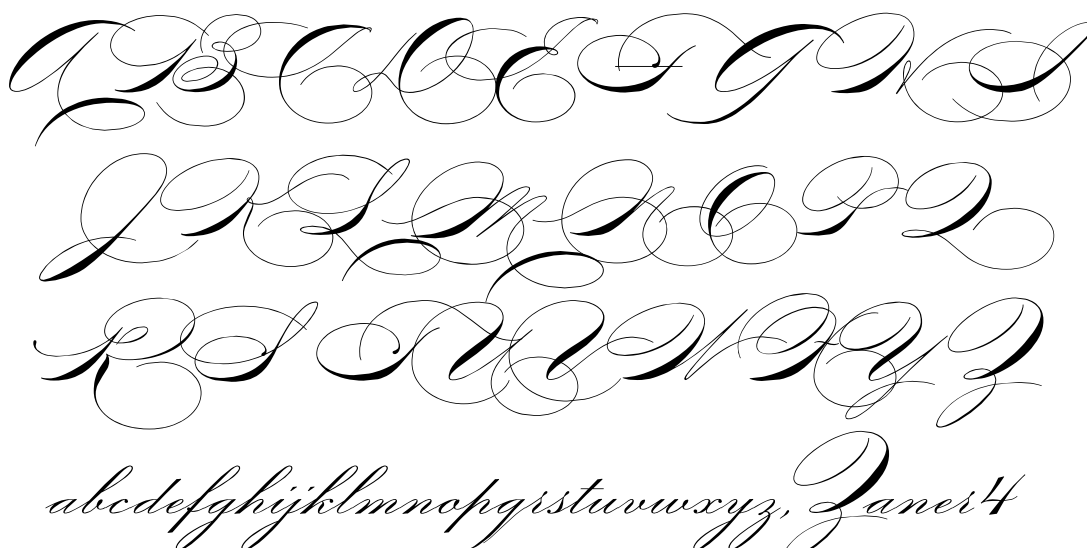 ABCDEFGHI
JKLMNOPQ
RSTUVWXYZ
abcdefghijklmnopqrstuvwxyz, Zaner4